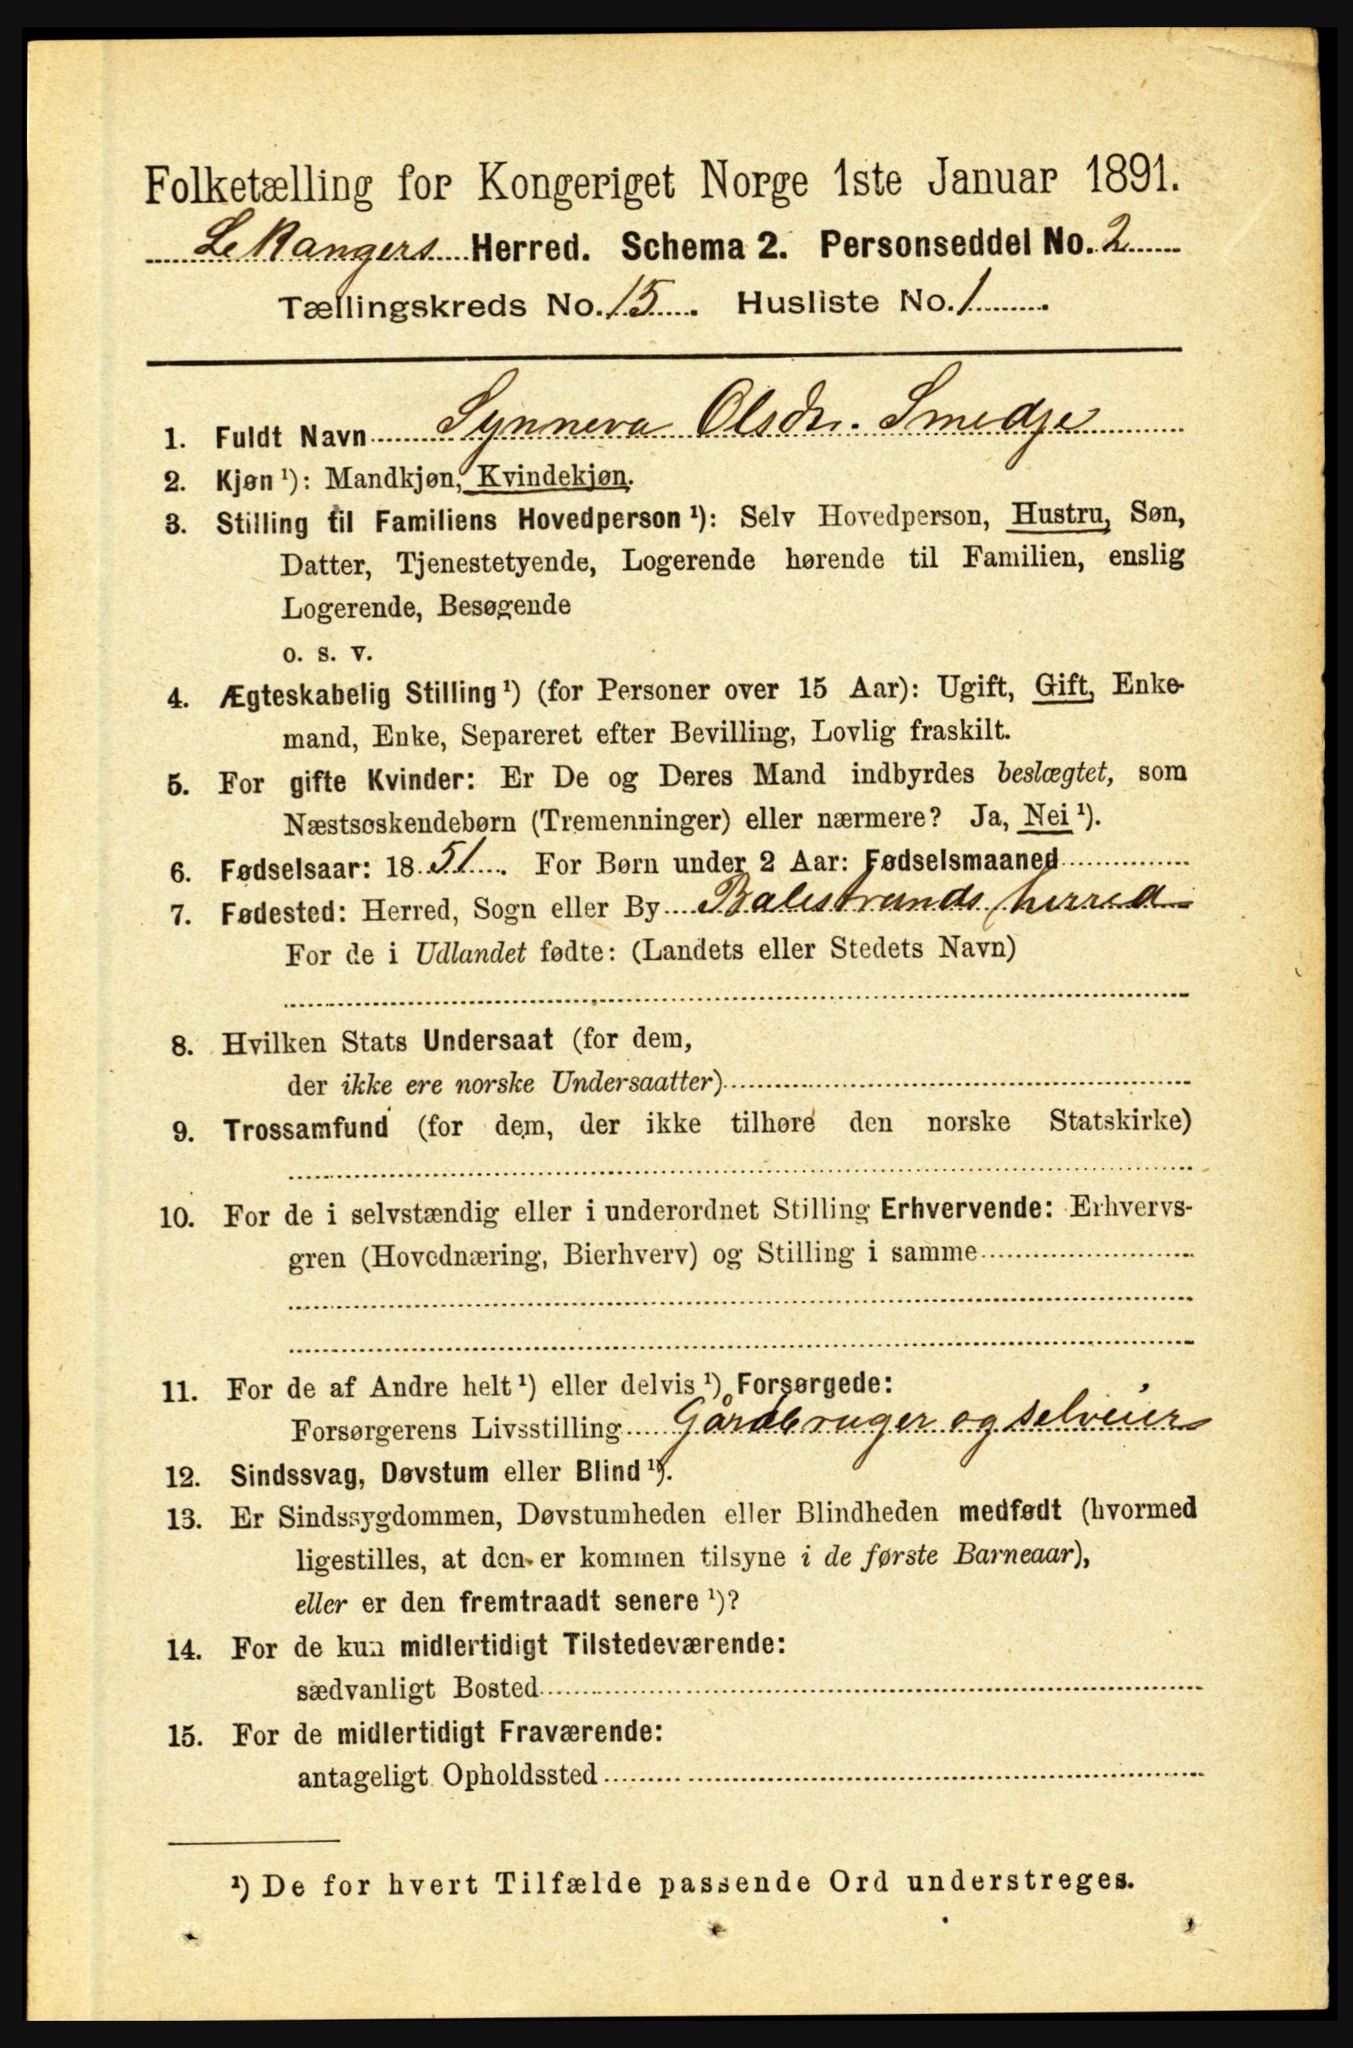 Folketælling for Kongeriget Norge 1ste Januar 1891.
Lekangers Herred. Schema 2. Personseddel No. 2
Tællingskreds No. 15. Husliste No. 1
1. Fuldt Navn Synneva Olsdr. Smedje
2. Kjøn¹): Mandkjøn, Kvindekjøn.
3. Stilling til Familiens Hovedperson¹): Selv Hovedperson, Hustru, Søn,
Datter, Tjenestetyende, Logerende hørende til Familien, enslig
Logerende, Besøgende
o. s. v.
4. Ægteskabelig Stilling¹) (for Personer over 15 Aar): Ugift, Gift, Enke-
mand, Enke, Separeret efter Bevilling, Lovlig fraskilt.
5. For gifte Kvinder: Er De og Deres Mand indbyrdes beslægtet, som
Næstsøskendebørn (Tremenninger) eller nærmere? Ja, Nei¹).
6. Fødselsaar: 1851. For Børn under 2 Aar: Fødselsmaaned
7. Fødested: Herred, Sogn eller By Balestrands herred
For de i Udlandet fødte: (Landets eller Stedets Navn)
8. Hvilken Stats Undersaat (for dem,
der ikke ere norske Undersaatter)
9. Trossamfund (for dem, der ikke tilhøre den norske Statskirke)
10. For de i selvstændig eller i underordnet Stilling Erhvervende: Erhvervs-
gren (Hovednæring, Bierhverv) og Stilling i samme
11. For de af Andre helt¹) eller delvis¹) Forsørgede:
Forsørgerens Livsstilling Gårdbruger og selveier
12. Sindssvag, Døvstum eller Blind¹).
13. Er Sindssygdommen, Døvstumheden eller Blindheden medfødt (hvormed
ligestilles, at den er kommen tilsyne i de første Barneaar),
eller er den fremtraadt senere¹)?
14. For de kun midlertidigt Tilstedeværende:
sædvanligt Bosted
15. For de midlertidigt Fraværende:
antageligt Opholdssted
¹) De for hvert Tilfælde passende Ord understreges.